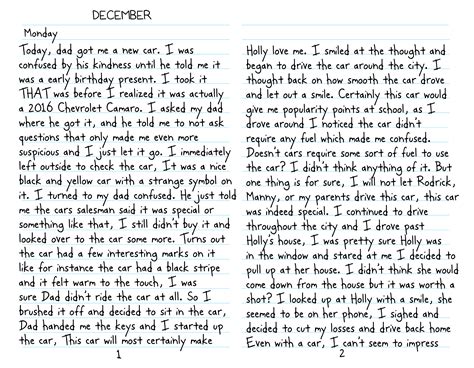 DECEMBER
Monday
Today, dad got me a new car. I was
confused by his kindness until he told me it
was a early birthday present. I took it
THAT was before I realized it was actually
a 2016 Chevrolet Camaro. I asked my dad
where he got it, and he told me to not ask
questions that only made me even more
suspicious and I just let it go. I immediately
left outside to check the car, It was a nice
black and yellow car with a strange symbol on
it. I turned to my dad confused. He just told
me the cars salesman said it was special or
something like that, I still didn't buy it and
looked over to the car some more. Turns out
the car had a few interesting marks on it
like for instance the car had a black stripe
and it felt warm to the touch, I was
sure Dad didn't ride the car at all. So I
brushed it off and decided to sit in the car,
Dad handed me the keys and I started up
the car, This car will most certainly make
1
Holly love me. I smiled at the thought and
began to drive the car around the city. I
thought back on how smooth the car drove
and let out a smile. Certainly this car would
give me popularity points at school, as I
drove around I noticed the car didn't
require any fuel which made me confused.
Doesn't cars require some sort of fuel to use
the car? I didn't think anything of it. But
one thing is for sure, I will not let Rodrick,
Manny, or my parents drive this car, this car
was indeed special. I continued to drive
throughout the city and I drove past
Holly's house, I was pretty sure Holly was
in the window and stared at me I decided to
pull up at her house. I didn't think she would
come down from the house but it was worth a
shot? I looked up at Holly with a smile, she
seemed to be on her phone, I sighed and
decided to cut my losses and drive back home
Even with a car, I can't seem to impress
2